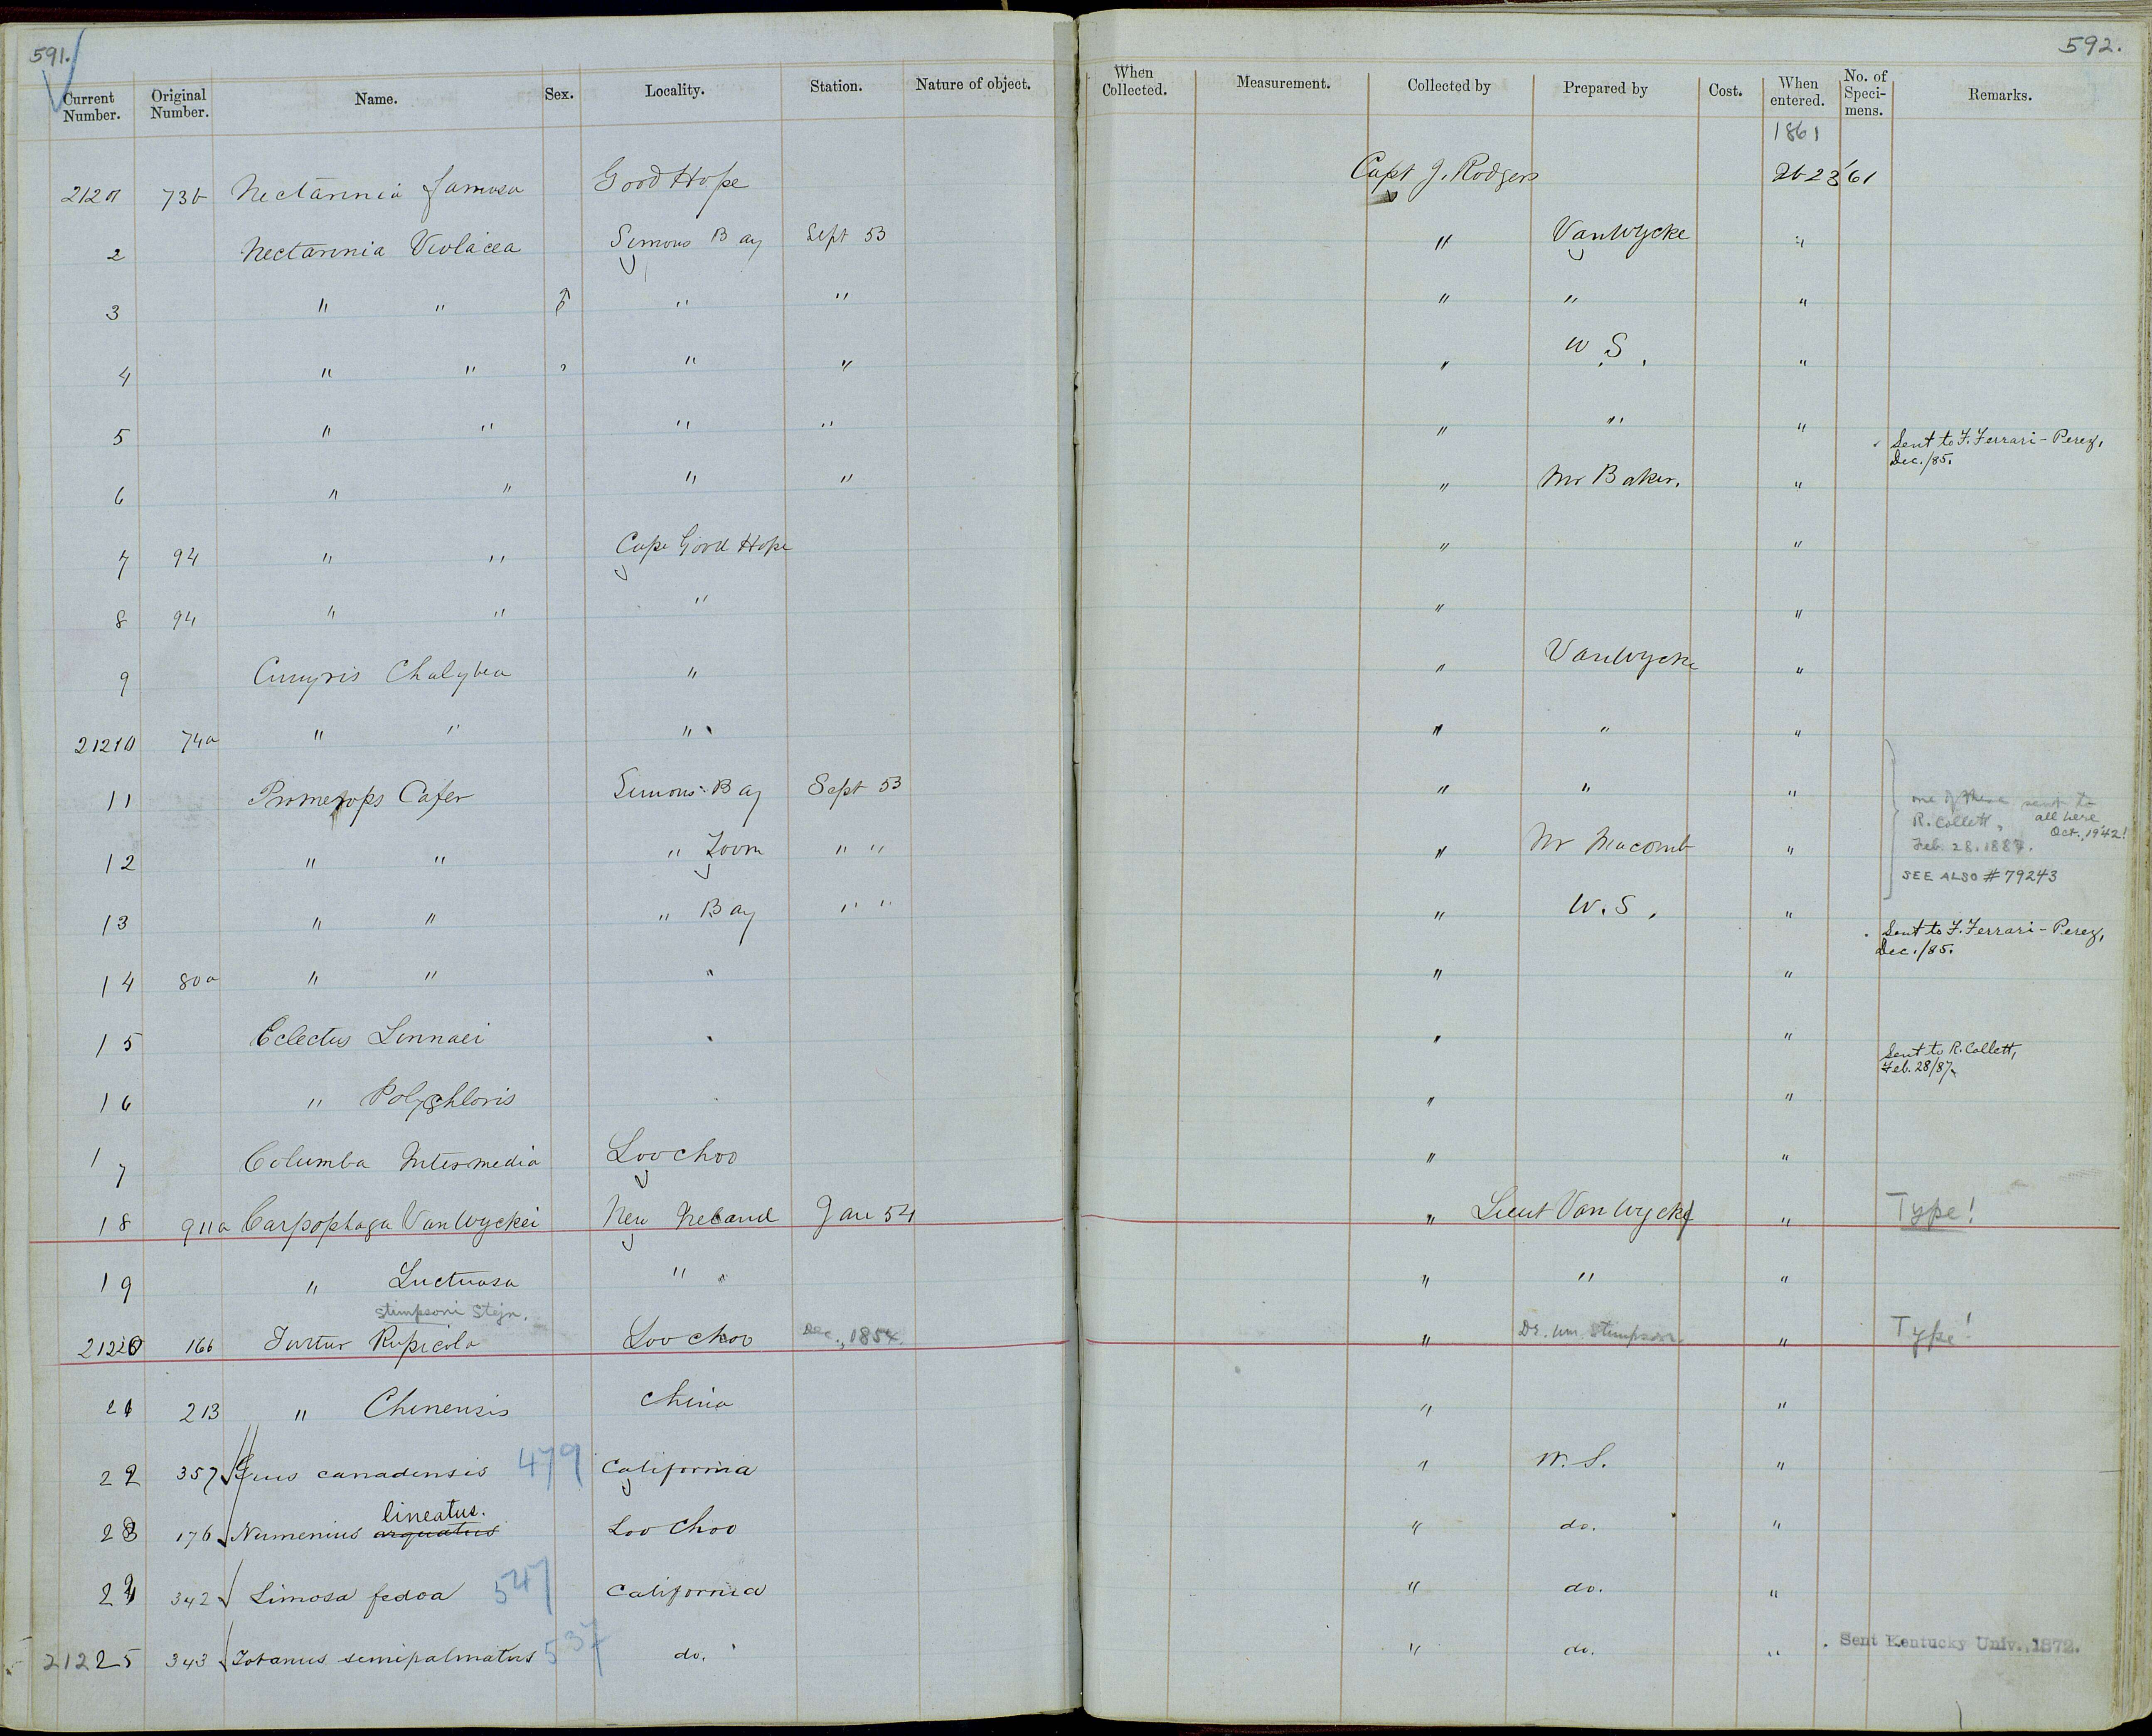 591.
592.
Current Number. Original Number. Name. Sex. Locality. Station. Nature of object. When Collected. Measurement. Collected by Prepared by Cost. When entered. No. of Specimens. Remarks.
1861
Nectarinia famosa Good Hope Capt J. Rodgers
2 Nectarinia Violacea Simons Bay Sept 53 " VanWycke "
3 " " ♂ " " " " "
4 " " " " " W. S. "
5 " " " " " " " Sent to F. Ferrari-Perez,
Dec./85.
6 " " " " " Mr Baker. "
7 94 " " Cape Good Hope " "
8 94 " " " " "
9 Cinnyris Chalybea " " VanWycke "
21210 74a " " " " " "
11 Promerops Cafer Simons Bay Sept 53 " " "
one of these sent to
R. Collett, all here
Oct., 1942!
Feb. 28. 1887.
SEE ALSO # 79243
12 " " " Town " " " Mr Macomb "
13 " " " Bay " " " W. S. " Sent to F. Ferrari-Perez,
Dec./85.
14 80a " " " " "
15 Eclectus Linnaei " " Sent to R. Collett,
Feb. 28/87
16 " Polychloris " "
17 Columba Intermedia Loo choo " "
18 911a Carpophaga VanWyckei New Ireland Jan 54 " Lieut Van Wycke " Type!
19 " Luctuosa " " " "
stimpsoni Stejn.
21220 166 Turtur Rupicola Loo choo Dec., 1854. " Dr. Wm. Stimpson. " Type!
21 213 " Chinensis China " "
22 357 Grus canadensis 479 California " W. S. "
lineatus.
23 176 Numenius arquatus Loo Choo " do. "
24 342 Limosa fedoa 547 California " do. "
21225 343 Totanus semipalmatus 537 do. " do. " Sent Kentucky Univ., 1872.